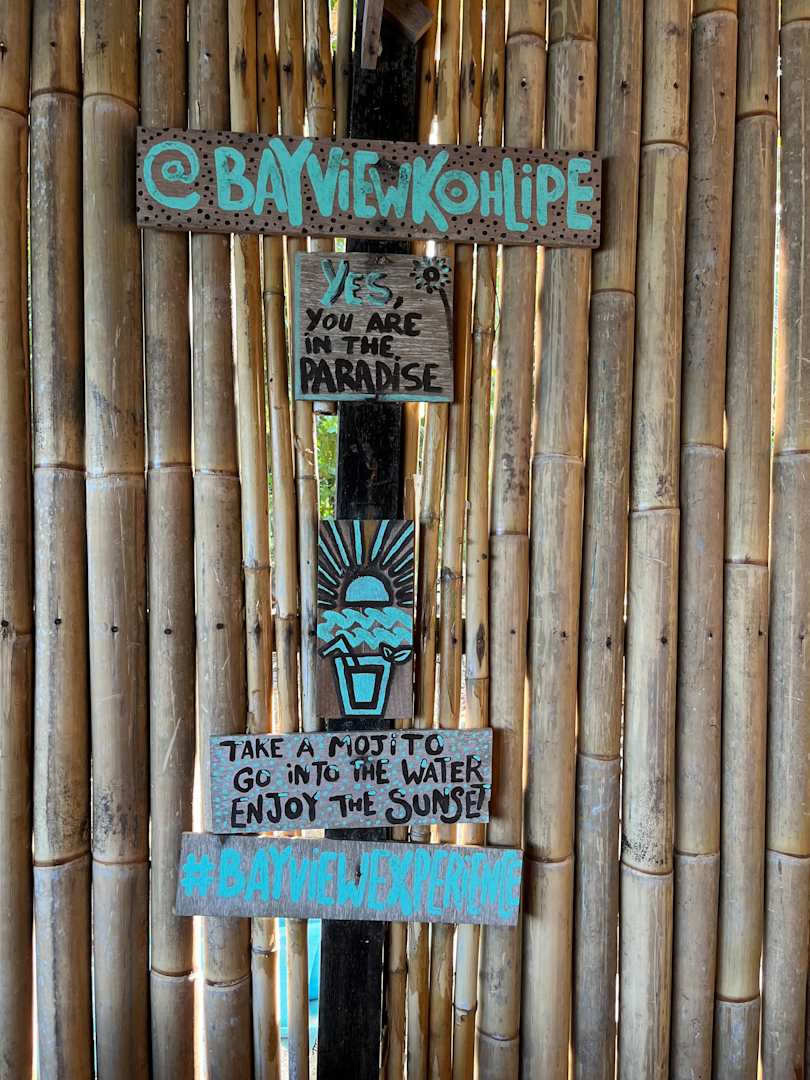 @BAYViEWKOHLiPE
YES,
YOU ARE
iN THE
PARADiSE
TAKE A MOJiTO
GO iNTO THE WATER
ENJOY THE SUNSET
#BAYViEWEXPERiENCE